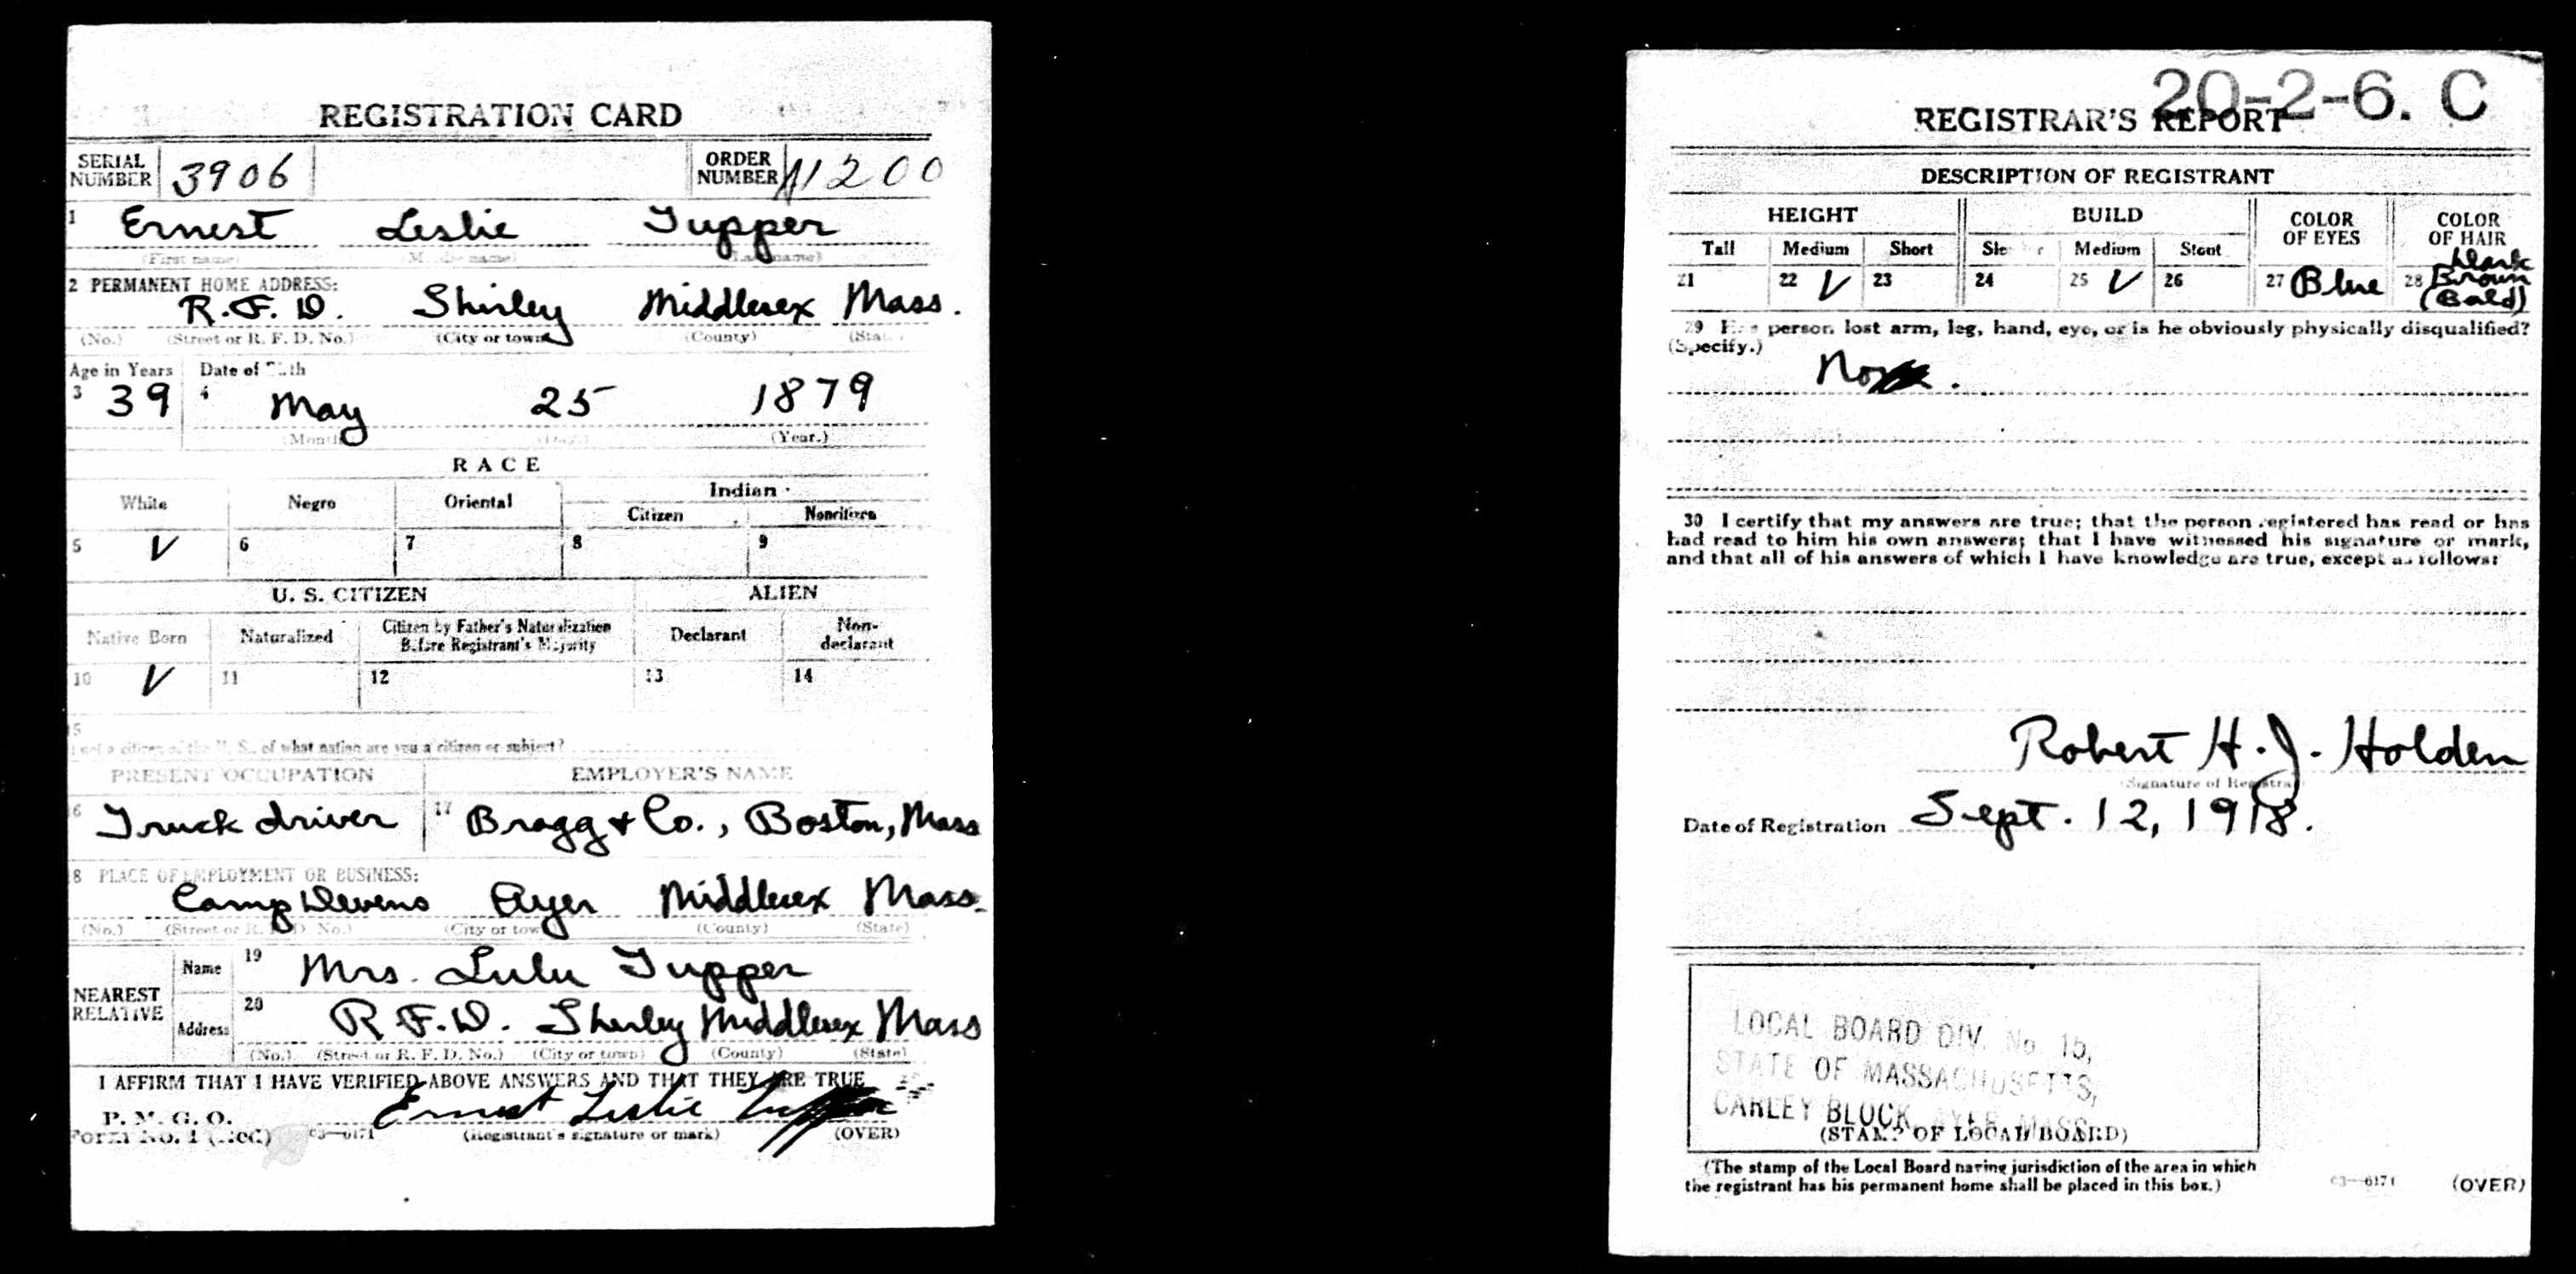 REGISTRATION CARD
SERIAL NUMBER 3906 ORDER NUMBER A1200
1 Ernest Leslie Tupper
(First name) (Middle name) (Last name)
2 PERMANENT HOME ADDRESS:
R.F.D. Shirley Middlesex Mass.
(No.) (Street or R. F. D. No.) (City or town) (County) (State)
Age in Years Date of Birth
3 39 4 May 25 1879
(Month) (Day.) (Year.)
RACE
White Negro Oriental Indian
Citizen Noncitizen
5 V 6 7 8 9
U. S. CITIZEN ALIEN
Native Born Naturalized Citizen by Father's Naturalization Before Registrant's Majority Declarant Non-declarant
10 V 11 12 13 14
15
If not a citizen of the U. S., of what nation are you a citizen or subject?
PRESENT OCCUPATION EMPLOYER'S NAME
16 Truck driver 17 Bragg & Co., Boston, Mass
18 PLACE OF EMPLOYMENT OR BUSINESS:
Camp Devens Ayer Middlesex Mass.
(No.) (Street or R. F. D. No.) (City or town) (County) (State)
NEAREST RELATIVE
Name 19 Mrs. Lulu Tupper
Address 20 R.F.D. Shirley Middlesex Mass
(No.) (Street or R. F. D. No.) (City or town) (County) (State)
I AFFIRM THAT I HAVE VERIFIED ABOVE ANSWERS AND THAT THEY ARE TRUE
P. M. G. O.
Form No. 1 (Red) 03—6171 Ernest Leslie Tupper
(Registrant's signature or mark) (OVER)
20-2-6. C
REGISTRAR'S REPORT
DESCRIPTION OF REGISTRANT
HEIGHT BUILD COLOR OF EYES COLOR OF HAIR
Tall Medium Short Slender Medium Stout
21 22 V 23 24 25 V 26 27 Blue 28 Dark Brown (Bald)
29 Has person lost arm, leg, hand, eye, or is he obviously physically disqualified?
(Specify.)
No
30 I certify that my answers are true; that the person registered has read or has
had read to him his own answers; that I have witnessed his signature or mark,
and that all of his answers of which I have knowledge are true, except as follows:
Robert H. J. Holden
(Signature of Registrar)
Date of Registration Sept. 12, 1918.
LOCAL BOARD DIV. No 15,
STATE OF MASSACHUSETTS,
CARLEY BLOCK, AYER, MASS.
(STAMP OF LOCAL BOARD)
(The stamp of the Local Board having jurisdiction of the area in which
the registrant has his permanent home shall be placed in this box.)
03—6171 (OVER)